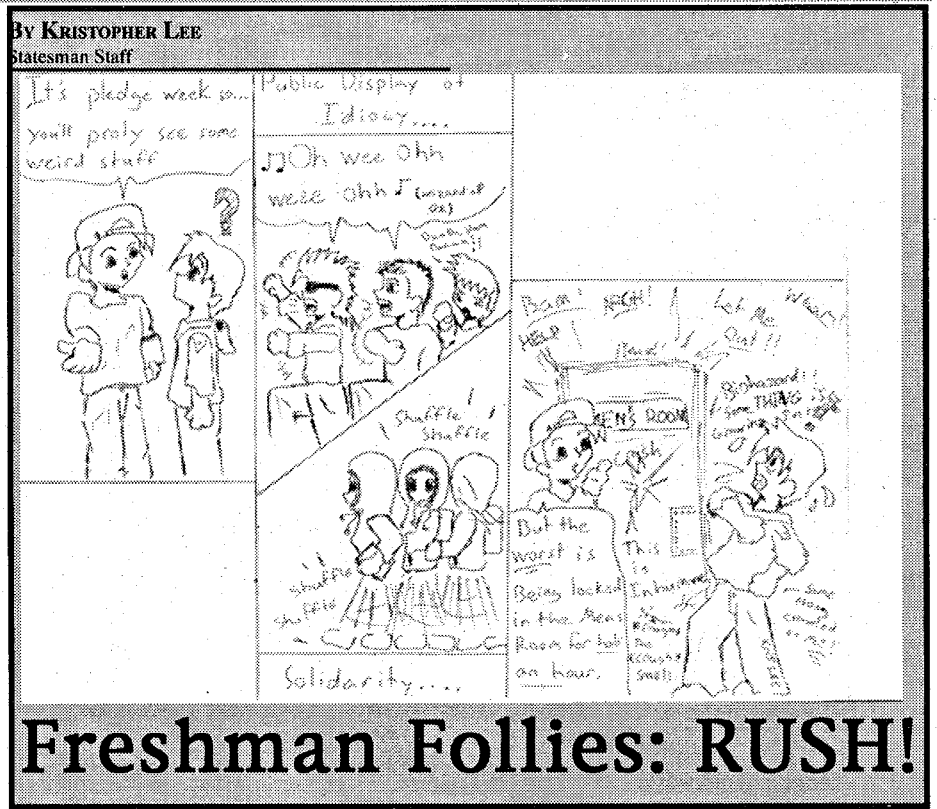 By Kristopher Lee
Statesman Staff
It's pledge week so...
you'll proly see some
weird stuff
?
Public Display of
Idiocy....
♫Oh wee Ohh
weee ohh♪ (wizard of
Oz)
Shuffle
Shuffle
shuffle
shuffle
Solidarity....
Bam! ARGH!
Let Me
Out!!
HELP!
MEN'S ROOM
Biohazard!!
some THING is
But the
worst is
Being locked
in the Mens
Room for half
an hour.
This
is
Inhumane
smell
some
THING
on me!
Freshman Follies: RUSH!